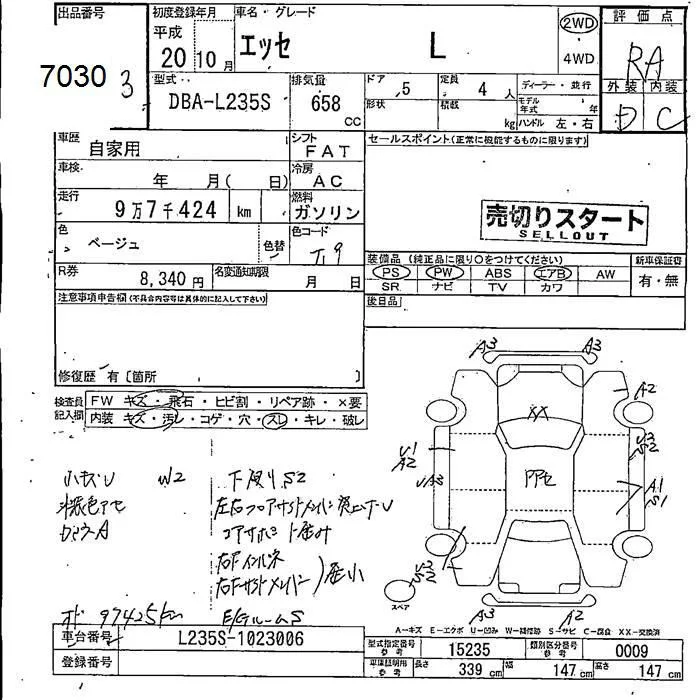 出品番号
7030 3
初度登録年月
平成
20 10月
車名・グレード
エッセ L
2WD
4WD
評価点
RA
外装 内装
D C
型式
DBA-L235S
排気量
658 CC
ドア 5
形状
定員 4 人
積載 kg
ディーラー・並行
モデル年式 年
ハンドル 左・右
車歴
自家用
シフト
FAT
車検 年 月( 日)
冷房
AC
走行
9万7千424 km
燃料
ガソリン
色
ベージュ
色替
色コード
T19
R券
8,340円
名変通知期限
月 日
セールスポイント(正常に機能するものに限ります)
売切りスタート
SELLOUT
装備品 (純正品に限り○をつけてください)
PS PW ABS エアB AW
SR ナビ TV カワ
新車保証書
有・無
後日品
注意事項申告欄(不具合内容等は具体的に記入して下さい)
修復歴 有〔箇所 〕
検査員記入欄
FW キズ・飛石・ヒビ割・リペア跡・×要
内装 キズ・汚レ・コゲ・穴・スレ・キレ・破レ
小キズU W2
下廻りS2
左右フロアサイドメンバー突上ゲU
コアサポート歪み
右Fインパネ
右Fサイドメンバー
歪小
E/GルームS
オド 97425km
A3 A3
A2
XX
U1
A2
UA3
U3
S2
A1
S1
アセ
U2
S2
スペア
A3 A2
A-キズ E-エクボ U-凹み W-補修跡 S-サビ C-腐食 XX-交換済
車台番号
L235S-1023006
登録番号
型式指定番号 参考
15235
類別区分番号 参考
0009
車庫証明用 参考
長さ 339 cm
幅 147 cm
高さ 147 cm